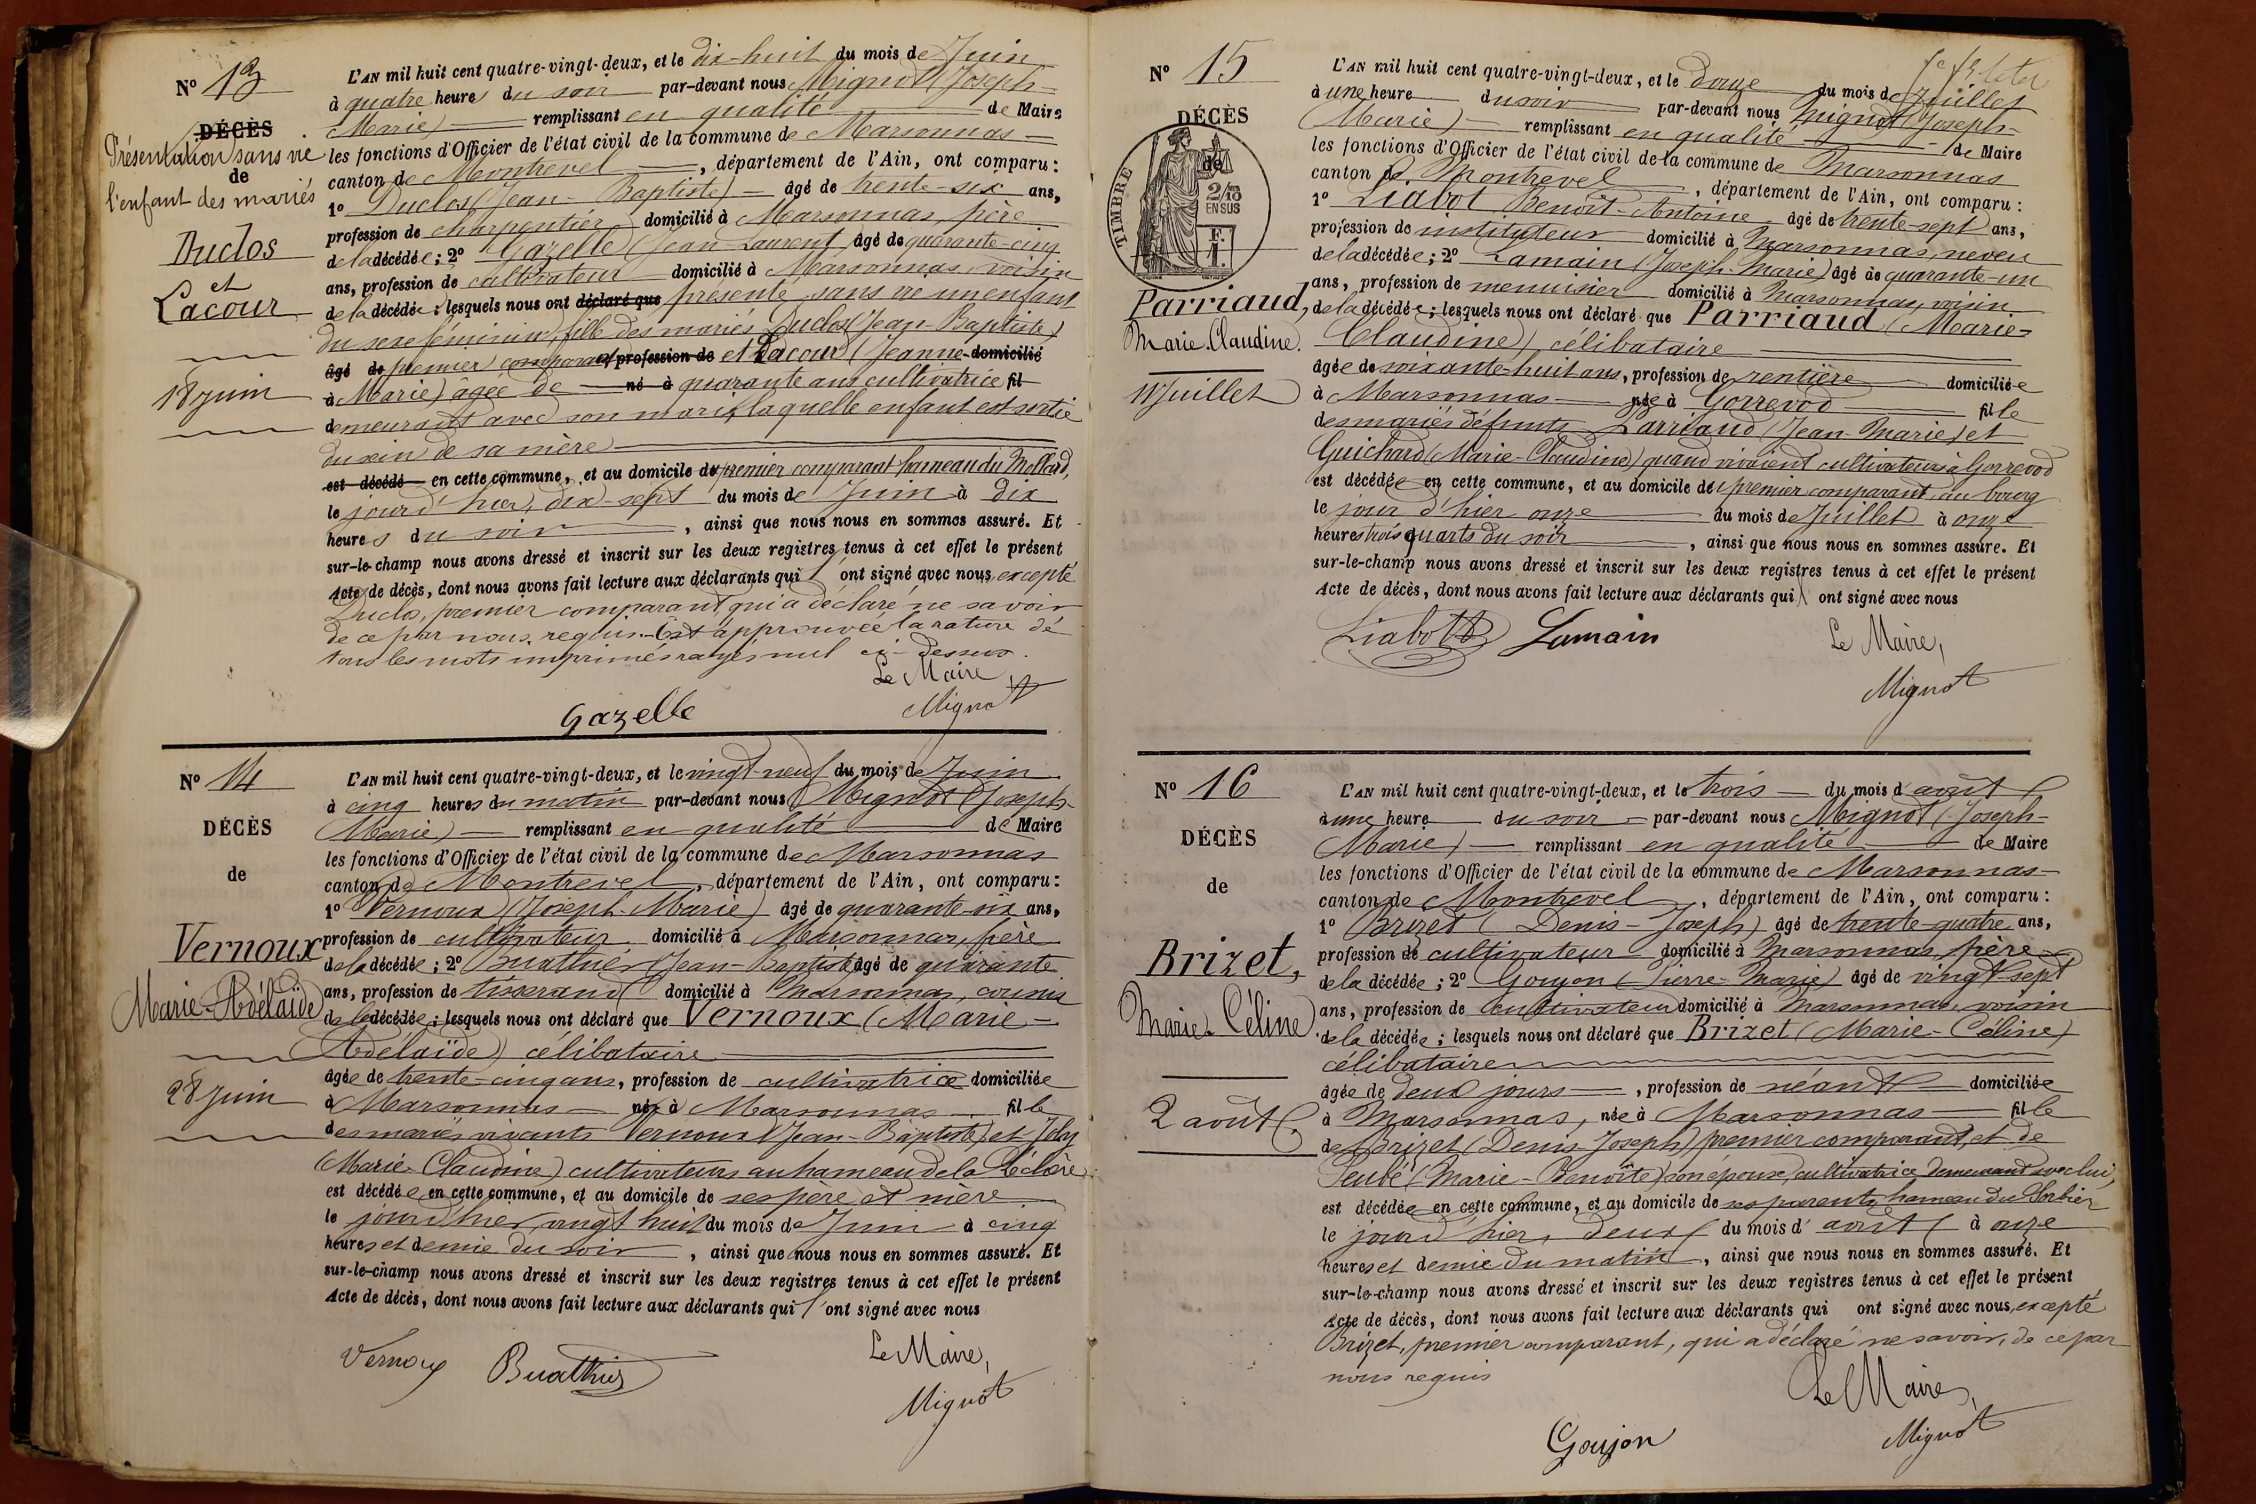 N° 13
DÉCÈS
Présentation sans vie
de
l'enfant des mariés
Duclos
et
Lacour
18 juin
L'AN mil huit cent quatre-vingt-deux, et le dix-huit du mois de Juin
à quatre heures du soir par-devant nous Mignot (Joseph-
Marie) remplissant en qualité de Maire
les fonctions d'Officier de l'état civil de la commune de Marsonnas
canton de Montrevel, département de l'Ain, ont comparu :
1° Duclos (Jean-Baptiste) âgé de trente-six ans,
profession de charpentier domicilié à Marsonnas, père
de la décédée ; 2° Gazelle (Jean-Laurent) âgé de quarante-cinq
ans, profession de cultivateur domicilié à Marsonnas, voisin
de la décédée ; lesquels nous ont déclaré que présenté sans vie un enfant
du sexe féminin, fille des mariés Duclos (Jean-Baptiste)
âgé de premier comparant profession de et Lacour (Jeanne- domicilié
à Marie) âgée de né à quarante ans cultivatrice fil
demeurant avec son mari, laquelle enfant est sortie
du sein de sa mère
est décédé en cette commune, et au domicile du premier comparant hameau du Mollard,
le jour d'hier, dix-sept du mois de Juin à dix
heures du soir, ainsi que nous nous en sommes assuré. Et
sur-le-champ nous avons dressé et inscrit sur les deux registres tenus à cet effet le présent
Acte de décès, dont nous avons fait lecture aux déclarants qui ont signé avec nous, excepté
Duclos, premier comparant qui a déclaré ne savoir
de ce par nous requis. Est approuvée la rature de
tous les mots imprimés rayés nul ci-dessus.
Le Maire
Gazelle Mignot
N° 14
DÉCÈS
de
Vernoux
Marie-Adélaïde
28 juin
L'AN mil huit cent quatre-vingt-deux, et le vingt-neuf du mois de Juin
à cinq heures du matin par-devant nous Mignot (Joseph-
Marie) remplissant en qualité de Maire
les fonctions d'Officier de l'état civil de la commune de Marsonnas
canton de Montrevel, département de l'Ain, ont comparu :
1° Vernoux (Joseph-Marie) âgé de quarante-six ans,
profession de cultivateur domicilié à Marsonnas, frère
de la décédée ; 2° Buathier (Jean-Baptiste) âgé de quarante
ans, profession de tisserand domicilié à Marsonnas, cousin
de la décédée ; lesquels nous ont déclaré que Vernoux (Marie-
Adélaïde) célibataire
âgée de trente-cinq ans, profession de cultivatrice domiciliée
à Marsonnas née à Marsonnas fille
des mariés vivants Vernoux (Jean-Baptiste) et Joly
(Marie-Claudine) cultivateurs au hameau de la
est décédée en cette commune, et au domicile de ses père et mère
le jour d'hier, vingt-huit du mois de Juin à cinq
heures et demie du soir, ainsi que nous nous en sommes assuré. Et
sur-le-champ nous avons dressé et inscrit sur les deux registres tenus à cet effet le présent
Acte de décès, dont nous avons fait lecture aux déclarants qui ont signé avec nous
Le Maire,
Vernoux Buathier Mignot
N° 15
DÉCÈS
de
TIMBRE
2/10
EN SUS
Parriaud,
Marie-Claudine.
11 Juillet
L'AN mil huit cent quatre-vingt-deux, et le douze du mois de Juillet
à une heure du soir par-devant nous Mignot (Joseph-
(Marie) remplissant en qualité de Maire
les fonctions d'Officier de l'état civil de la commune de Marsonnas
canton de Montrevel, département de l'Ain, ont comparu :
1° Liabot Benoît-Antoine âgé de trente-sept ans,
profession de instituteur domicilié à Marsonnas, neveu
de la décédée ; 2° Lamain (Joseph-Marie) âgé de quarante-un
ans, profession de menuisier domicilié à Marsonnas, voisin
de la décédée ; lesquels nous ont déclaré que Parriaud (Marie-
Claudine) célibataire
âgée de soixante-huit ans, profession de rentière domiciliée
à Marsonnas née à Gorrevod fille
des mariés défunts Parriaud (Jean-Marie) et
Guichard (Marie-Claudine) quand vivaient cultivateurs à Gorrevod
est décédée en cette commune, et au domicile du premier comparant, au bourg
le jour d'hier onze du mois de Juillet à onze
heures trois quarts du soir, ainsi que nous nous en sommes assuré. Et
sur-le-champ nous avons dressé et inscrit sur les deux registres tenus à cet effet le présent
Acte de décès, dont nous avons fait lecture aux déclarants qui ont signé avec nous
Liabot Lamain Le Maire,
Mignot
N° 16
DÉCÈS
de
Brizet,
Marie-Céline.
2 août
L'AN mil huit cent quatre-vingt-deux, et le trois du mois d'août
à une heure du soir par-devant nous Mignot (Joseph-
Marie) remplissant en qualité de Maire
les fonctions d'Officier de l'état civil de la commune de Marsonnas
canton de Montrevel, département de l'Ain, ont comparu :
1° Brizet (Denis-Joseph) âgé de trente-quatre ans,
profession de cultivateur domicilié à Marsonnas, père
de la décédée ; 2° Goujon (Pierre-Marie) âgé de vingt-sept
ans, profession de cultivateur domicilié à Marsonnas, voisin
de la décédée ; lesquels nous ont déclaré que Brizet (Marie-Céline)
célibataire
âgée de deux jours, profession de néant domiciliée
à Marsonnas, née à Marsonnas fille
de Brizet (Denis-Joseph) premier comparant, et de
(Marie-Benoîte) son épouse, cultivatrice demeurant avec lui,
est décédée en cette commune, et au domicile de ses parents, hameau du Sorbier
le jour d'hier, deux du mois d'août à onze
heures et demie du matin, ainsi que nous nous en sommes assuré. Et
sur-le-champ nous avons dressé et inscrit sur les deux registres tenus à cet effet le présent
Acte de décès, dont nous avons fait lecture aux déclarants qui ont signé avec nous, excepté
Brizet, premier comparant, qui a déclaré ne savoir, de ce par
nous requis
Le Maire,
Goujon Mignot